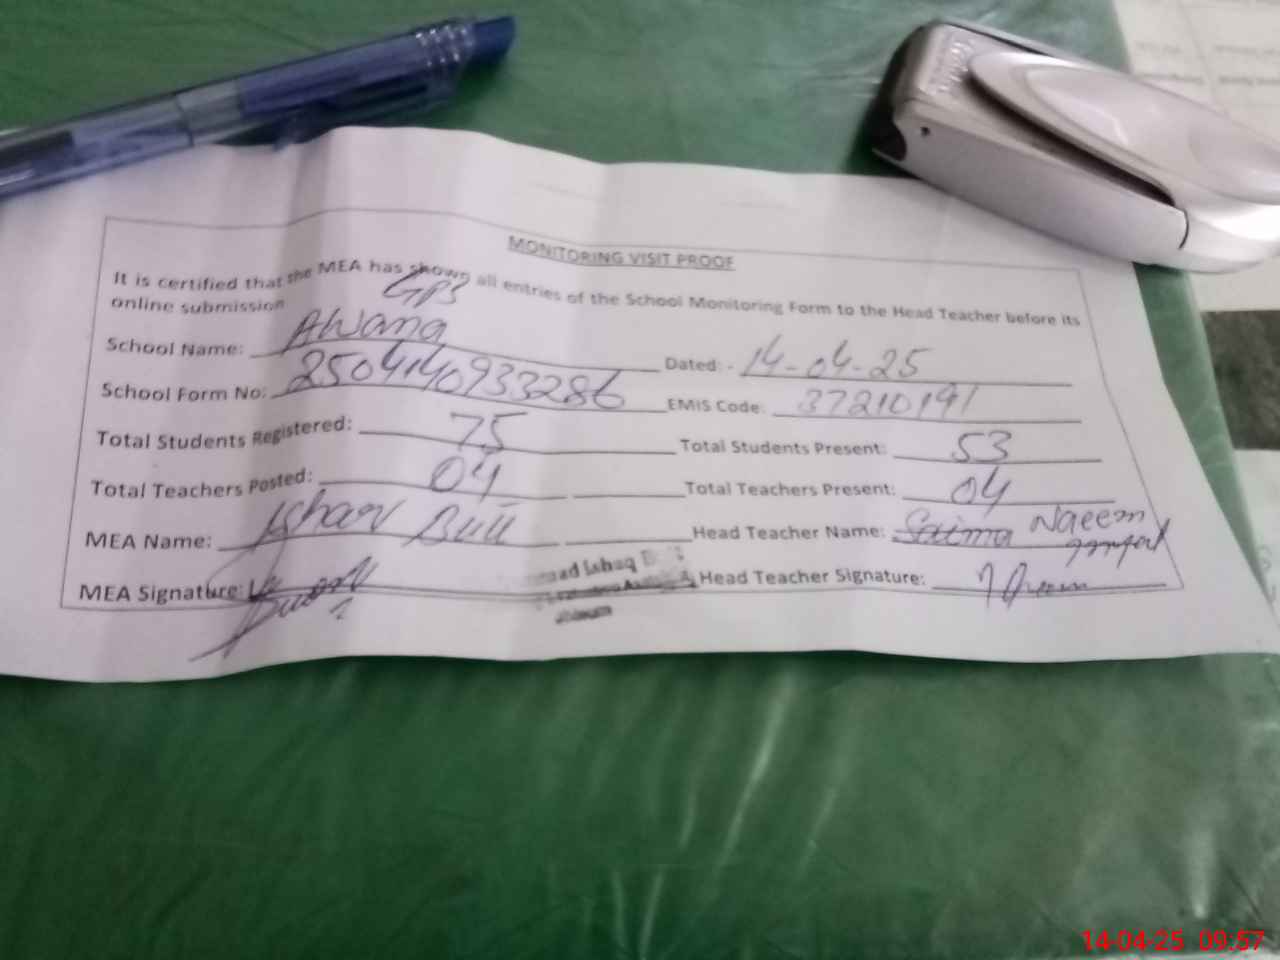 MONITORING VISIT PROOF
It is certified that the MEA has shown all entries of the School Monitoring Form to the Head Teacher before its
online submission
GPS
School Name: Awana Dated: - 14-04-25
School Form No: 2504140933286 EMIS Code: 37210191
Total Students Registered: 75 Total Students Present: 53
Total Teachers Posted: 04 Total Teachers Present: 04
MEA Name: Ishaq Butt Head Teacher Name: Saima Naeem
MEA Signature: Head Teacher Signature:
Ishaq
Jhelum
14-04-25 09:57